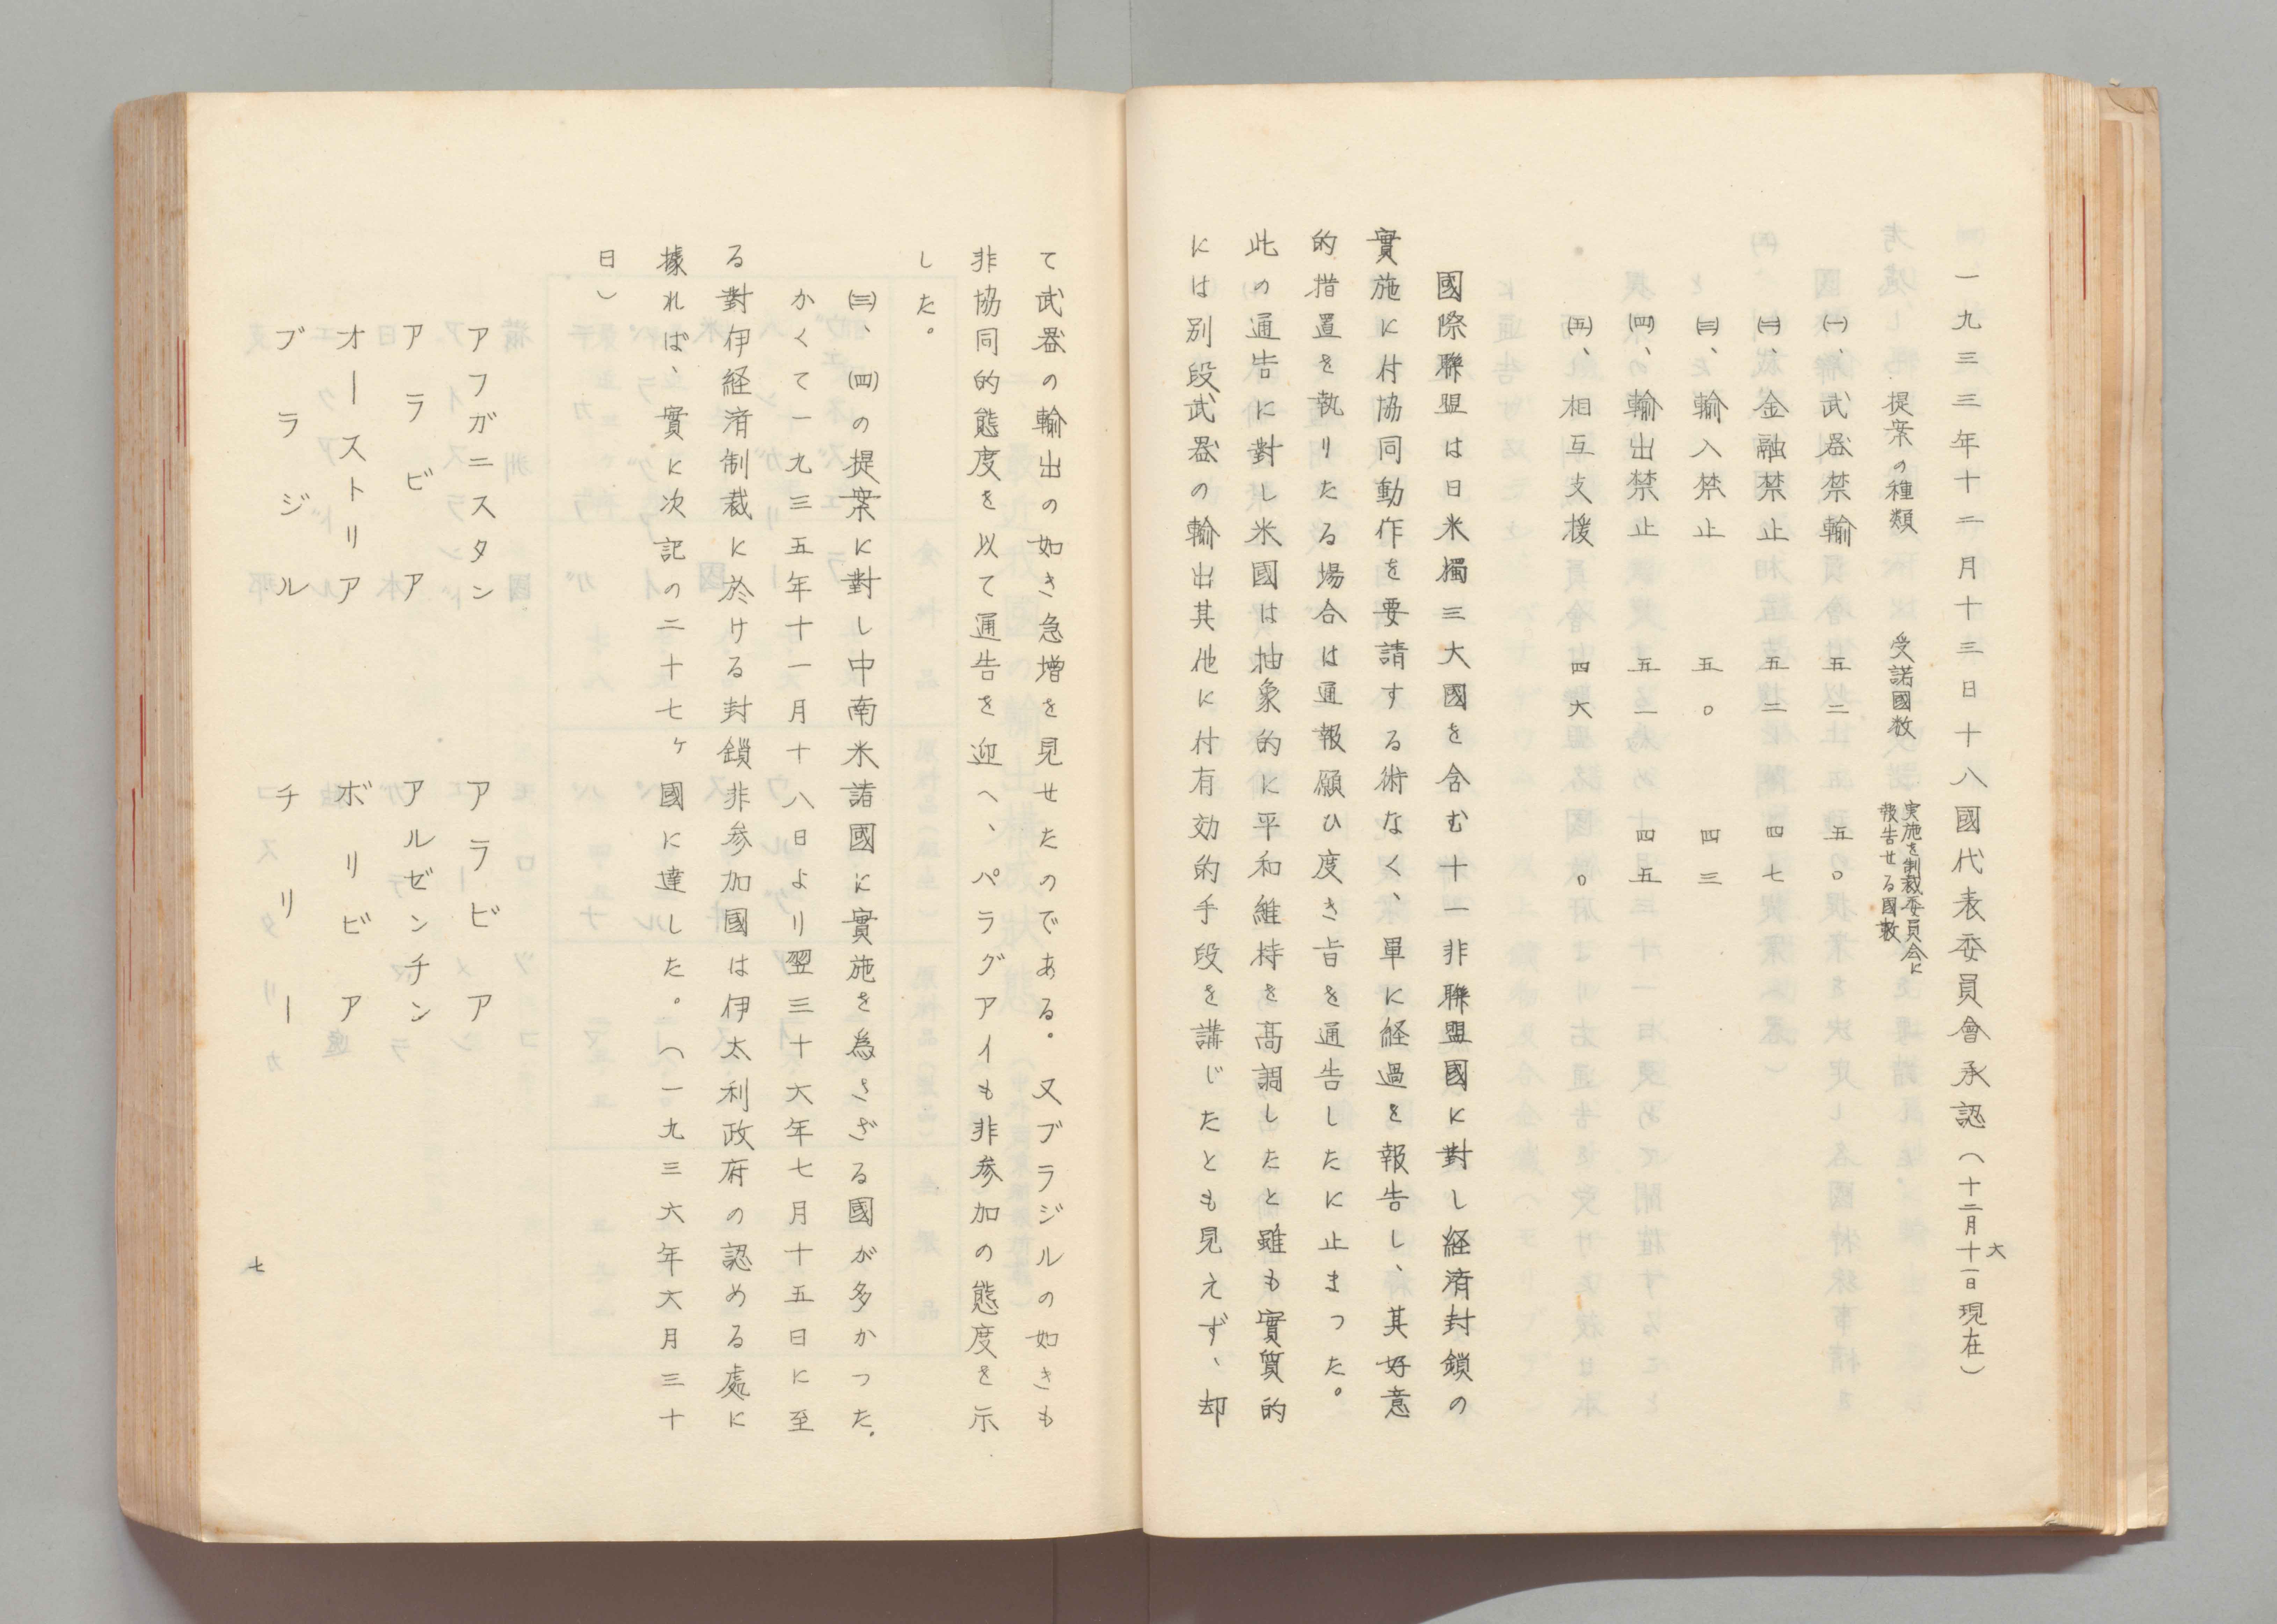 一九三三年十二月十三日十八國代表委員會承認（十二月十一日現在）
六
提案の種類　受諾國数　実施を制裁委員会に
報告せる國数
㈠、武器禁輸　五二　五〇
㈡、金融禁止　五二　四七
㈢、輸入禁止　五〇　四三
㈣、輸出禁止　五一　四五
㈤、相互支援　四六　〇
國際聯盟は日米獨三大國を含む十一非聯盟國に對し経済封鎖の
實施に付協同動作を要請する術なく、單に経過を報告し、其好意
的措置を執りたる場合は通報願ひ度き旨を通告したに止まつた。
此の通告に對し米國は抽象的に平和維持を高調したと雖も實質的
には別段武器の輸出其他に付有効的手段を講じたとも見えず、却
て武器の輸出の如き急増を見せたのである。又ブラジルの如きも
非協同的態度を以て通告を迎へ、パラグアイも非参加の態度を示
した。
㈢、㈣の提案に對し中南米諸國に實施を為さざる國が多かつた。
かくて一九三五年十一月十八日より翌三十六年七月十五日に至
る對伊経済制裁に於ける封鎖非参加國は伊太利政府の認める處に
據れば、實に次記の二十七ヶ國に達した。（一九三六年六月三十
日）
アフガニスタン　アラビア
アラビア　アルゼンチン
オーストリア　ボリビア
ブラジル　チリー
七